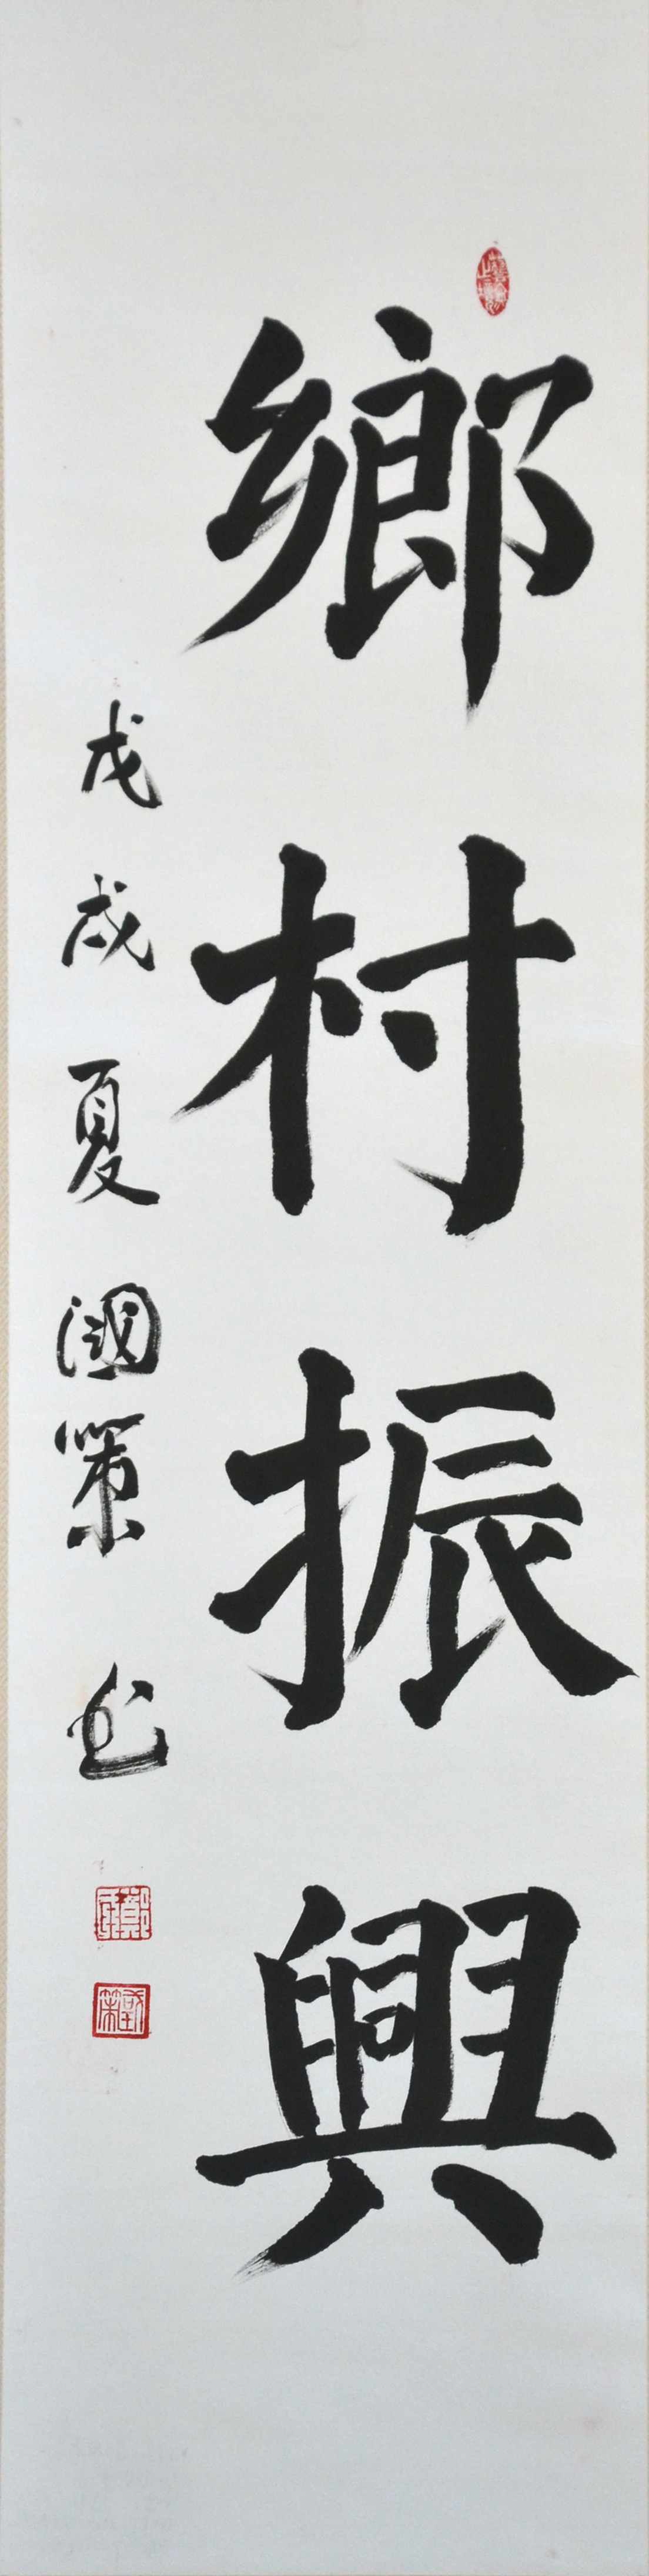 鄉村振興
戊戌夏國策書